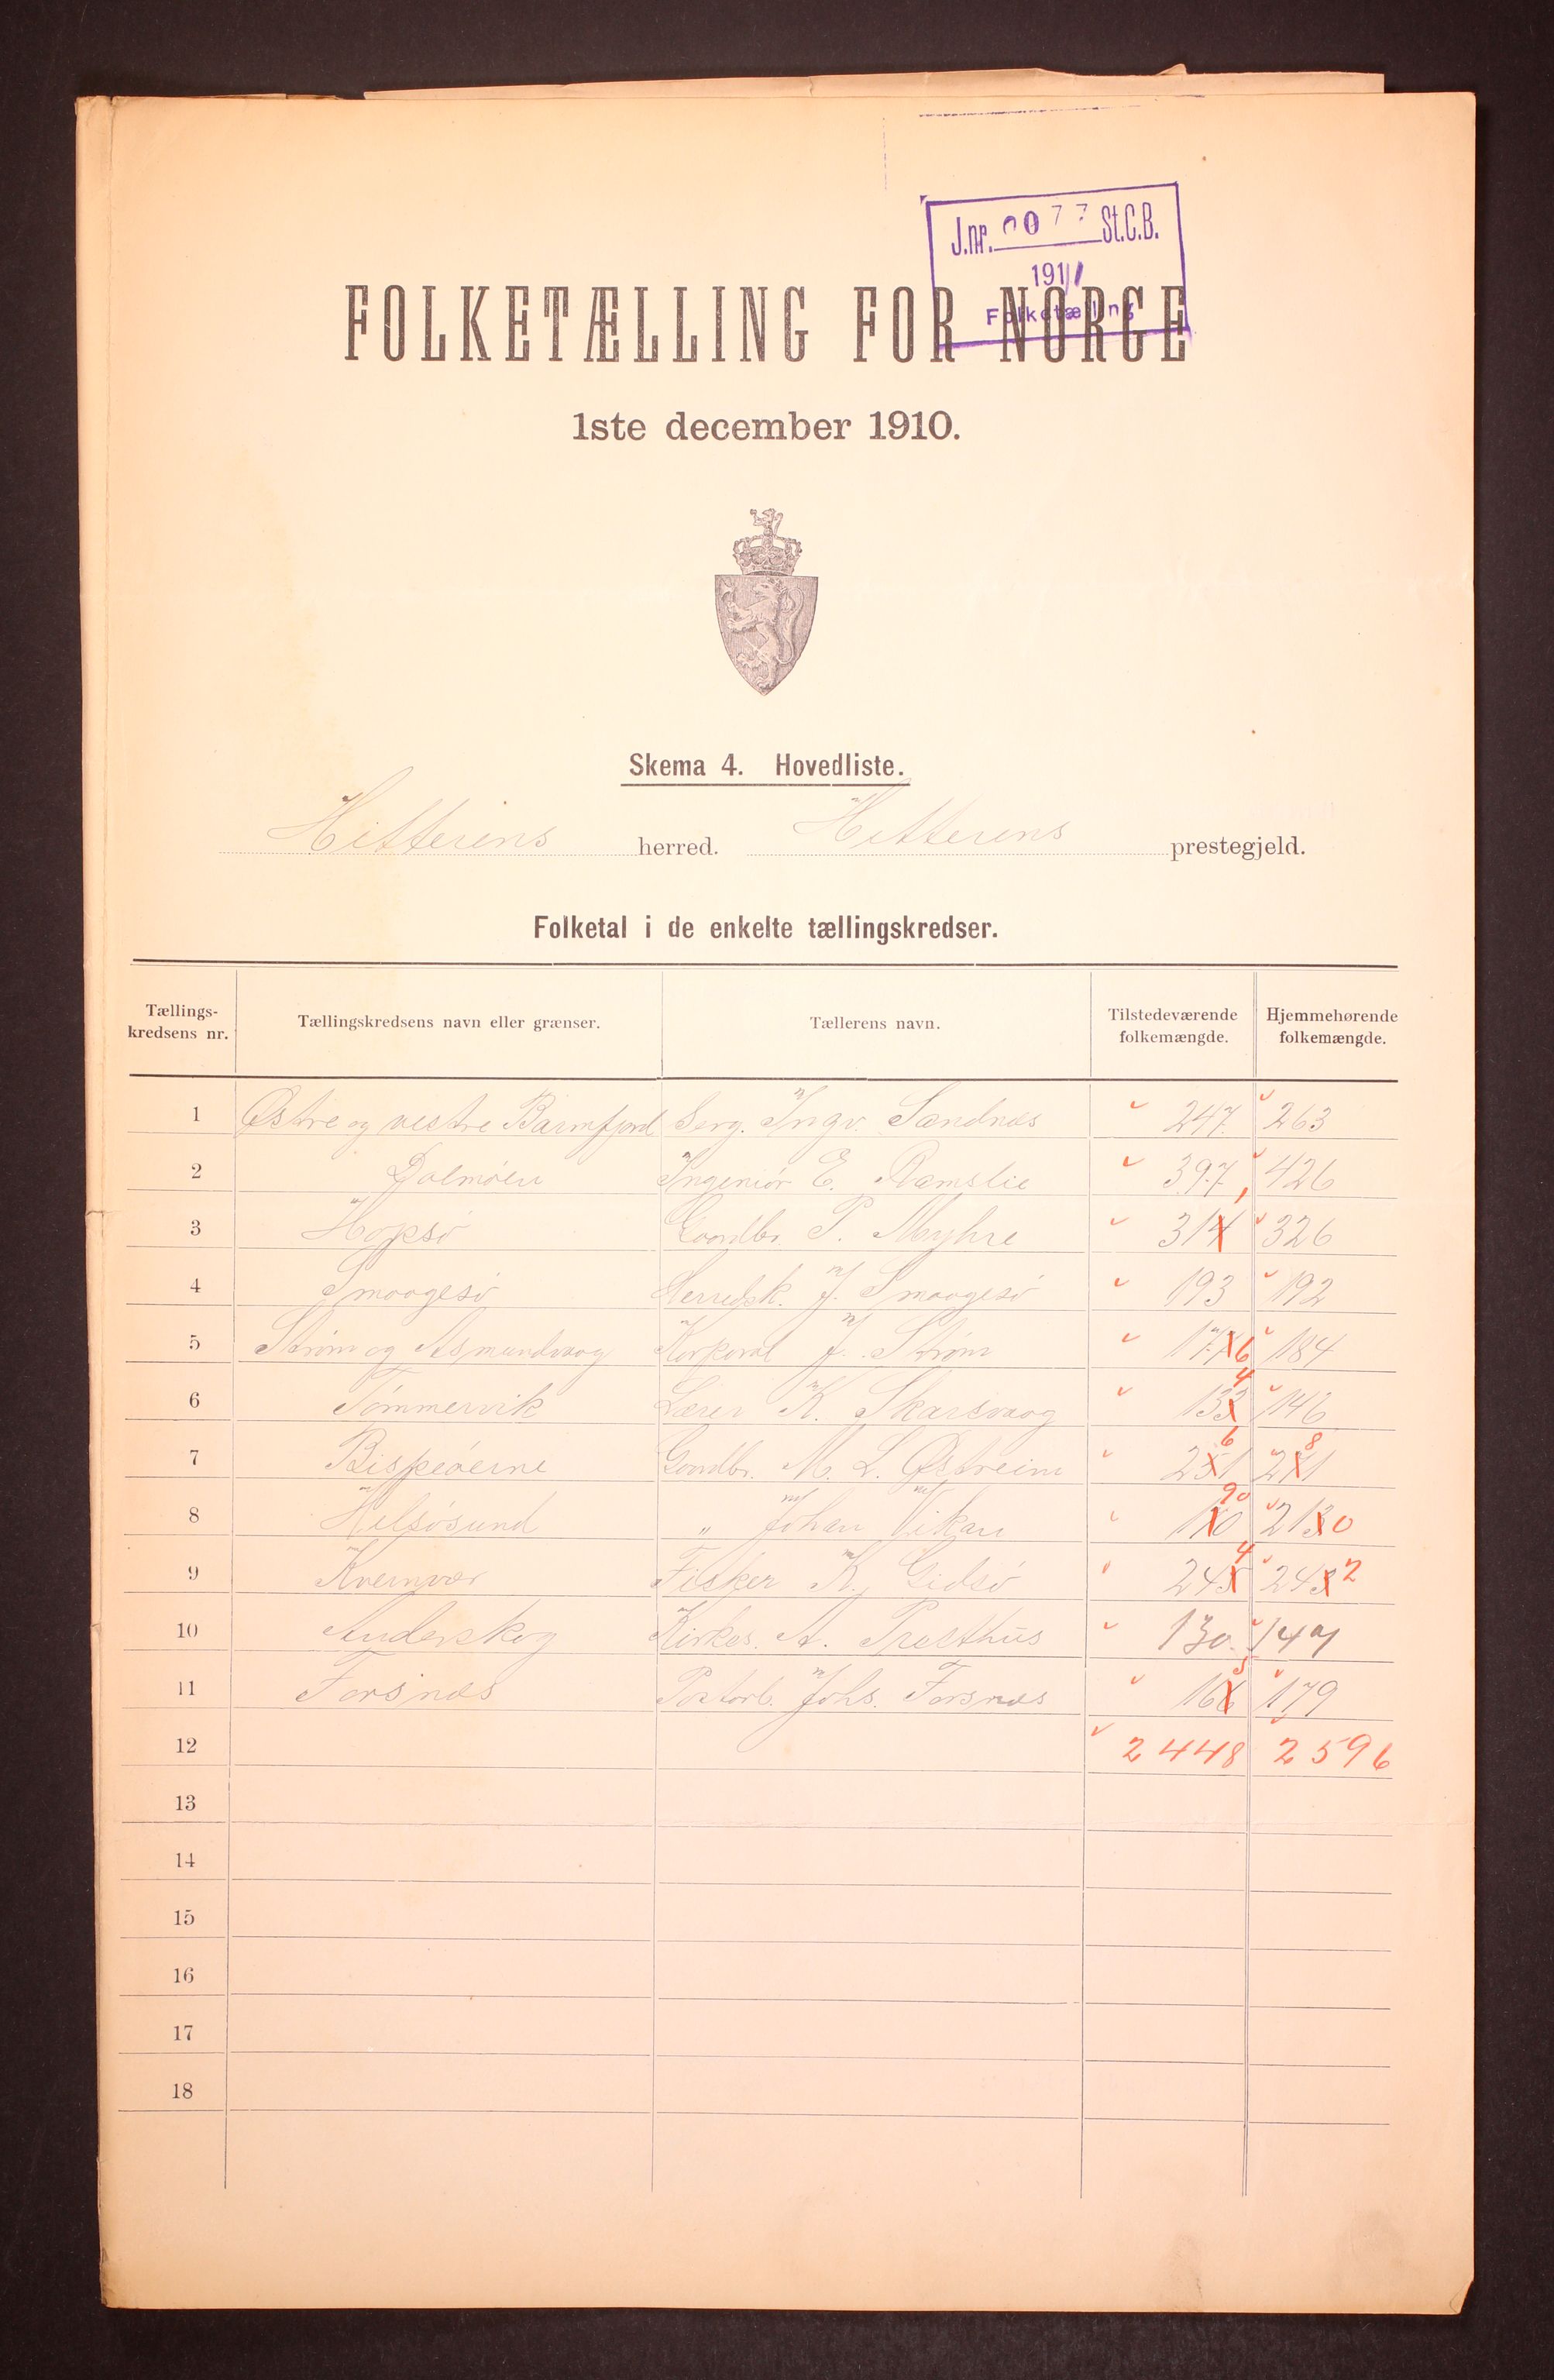 J.nr. 0077 St.C.B.
1911
Folketælling
FOLKETÆLLING FOR NORGE
1ste december 1910.
Skema 4. Hovedliste.
Hitterens herred. Hitterens prestegjeld.
Folketal i de enkelte tællingskredser.
Tællings-kredsens nr. Tællingskredsens navn eller grænser. Tællerens navn. Tilstedeværende folkemængde. Hjemmehørende folkemængde.
1 Østre og vestre Barmfjord Serg. Ingv. Sandnæs 247 263
2 Dolmøen Ingeniør E. Ramslie 397 426
3 Hopsø Gaardbr. P. Myhre 314 326
4 Smaagesø Herredsk. J. Smaagesø 193 192
5 Strøm og Asmundvaag Korporal J. Strøm 177 6 184
6 Tømmervik Lærer K. Skarsvaag 133 4 146
7 Bispøerne Gaardbr. M. L. Østreim 251 6 271 8
8 Helsøsund " Johan Vikan 110 90 213 0
9 Kvernvær Fisker K. Gidsø 245 4 243 2
10 Anderskog Kirkes. A. Presthus 130 147
11 Forsnæs Postorb. Johs. Forsnæs 166 5 179
12 2448 2596
13
14
15
16
17
18